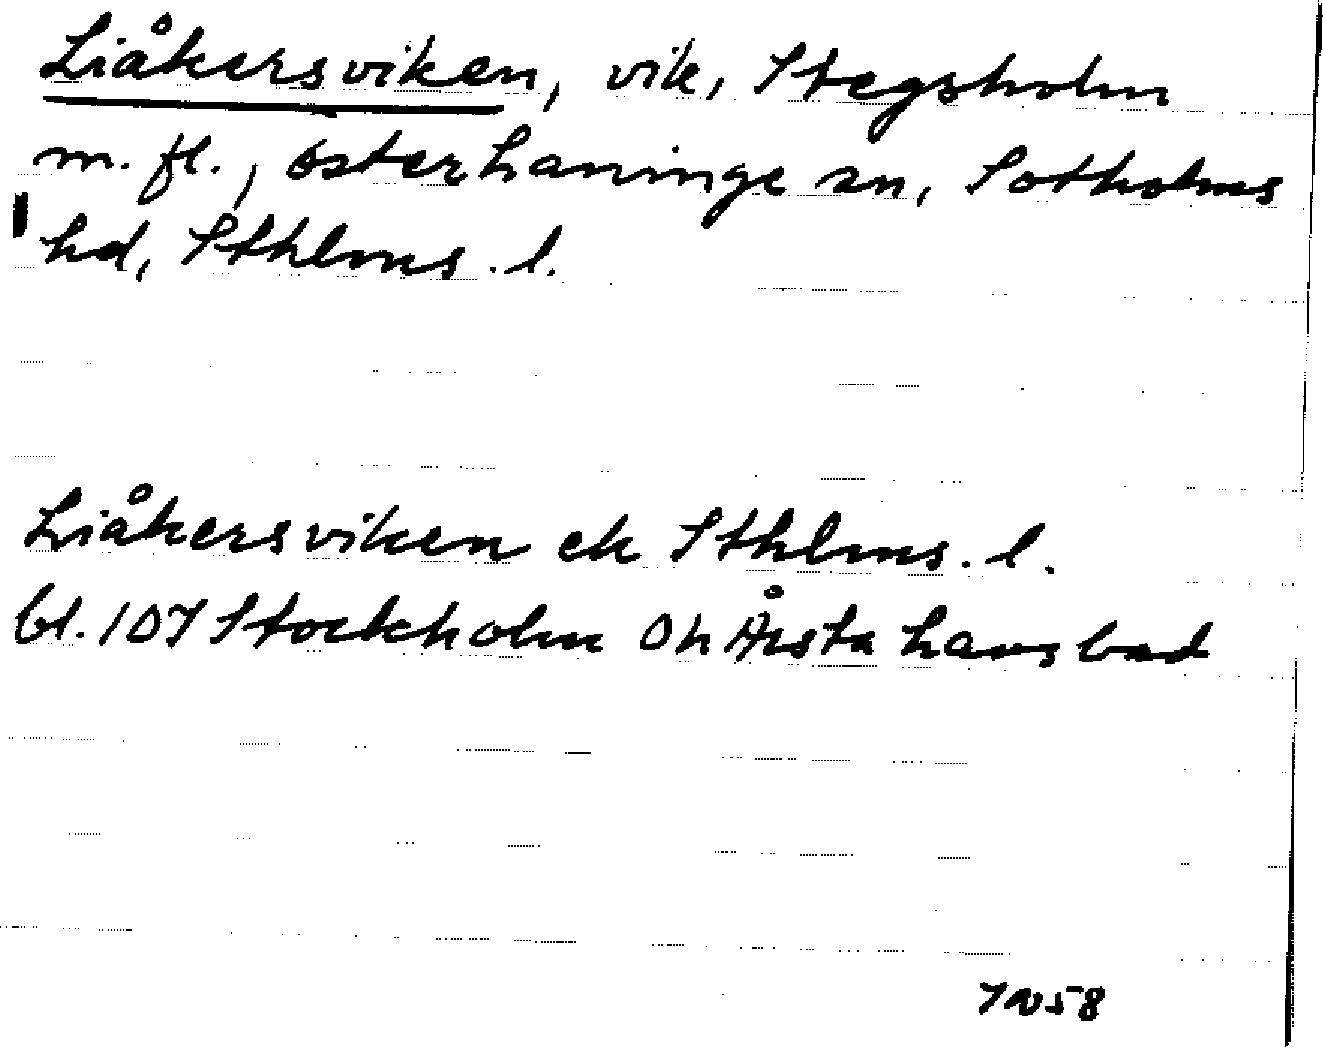 Liåkersviken, vik, Stegsholm
m. fl., Österhaninge sn, Sotholms
hd, Sthlms. l.
Liåkersviken ek Sthlms. l.
bl. 107 Stockholm Årsta havsbad
58